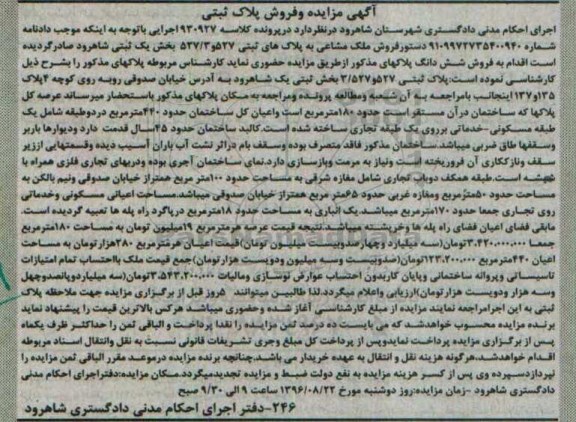 آگهی مزایده وفروش پلاک ثبتی
اجرای احکام مدنی دادگستری شهرستان شاهرود درنظردارد درپرونده کلاسه ۹۳۰۹۲۷ اجرایی باتوجه به اینکه موجب دادنامه
شماره ۹۱۰۹۹۷۲۷۳۵۴۰۰۹۴۰ دستورفروش ملک مشاعی به پلاک های ثبتی ۵۲۷و۵۲۷/۳ بخش یک ثبتی شاهرود صادرگردیده
است اقدام به فروش شش دانگ پلاکهای مذکور ازطریق مزایده حضوری نماید کارشناس مربوطه پلاکهای مذکور را بشرح ذیل
کارشناسی نموده است:پلاک ثبتی ۵۲۷و۵۲۷/۳ بخش ثبتی یک شاهرود به آدرس خیابان صدوقی روبه روی کوچه ۴پلاک
۱۳۵و۱۳۷ اینجانب بامراجعه به آن شعبه ومطالعه پرونده ومراجعه به مکان پلاکهای مذکور باستحضار میرساند عرصه کل
پلاکها که ساختمان درآن مستقر است حدود ۱۸۰مترمربع است واعیان کل ساختمان حدود ۴۴۰مترمربع دردوطبقه شامل یک
طبقه مسکونی-خدماتی برروی یک طبقه تجاری ساخته شده است.کالبد ساختمان حدود ۴۵سال قدمت دارد ودیوارها باربر
وسقفها طاق ضربی میباشد.ساختمان مذکور فاقد متصرف بوده وسقف بام دراثر نشت آب باران آسیب دیده وقسمتهایی اززیر
سقف ونازککاری آن فروریخته است ونیاز به مرمت وبازسازی دارد.نمای ساختمان آجری بوده ودربهای تجاری فلزی همراه با
شیشه است.طبقه همکف دوباب تجاری شامل مغازه شرقی به مساحت حدود ۱۰۰متر مربع همتراز خیابان صدوقی ونیم بالکن به
مساحت حدود ۵۰مترمربع ومغازه غربی حدود ۶۵متر مربع همتراز خیابان صدوقی میباشد.مساحت اعیانی مسکونی وخدماتی
روی تجاری جمعا حدود ۱۷۰مترمربع میباشد.یک انباری به مساحت حدود ۱۸مترمربع درپاگرد راه پله ها تعبیه گردیده است.
مابقی فضای اعیان فضای راه پله ها وخرپشته میباشد.نتیجه قیمت عرصه هرمترمربع ۱۹میلیون تومان به مساحت ۱۸۰مترمربع
جمعا ۳،۴۲۰،۰۰۰،۰۰۰تومان(سه میلیارد وچهارصدوبیست میلیون تومان)قیمت اعیان هرمترمربع ۲۸۰هزارتومان به مساحت
اعیان ۴۴۰مترمربع ۱۲۳،۲۰۰،۰۰۰تومان(صدوبیست وسه میلیون ودویست هزارتومان)جمع قیمت ملک بااحتساب تمام امتیازات
تاسیساتی وپروانه ساختمانی وپایان کاربدون احتساب عوارض نوسازی ومالیات ۳،۵۴۳،۲۰۰،۰۰۰تومان(سه میلیاردوپانصدوچهل
وسه هزار ودویست هزارتومان)ارزیابی واعلام میگردد.لذا طالبین میتوانند ۵روز قبل از برگزاری مزایده جهت ملاحظه پلاک
ثبتی به این اجرامراجعه نمایند مزایده از مبلغ کارشناسی آغاز شده وحضوری میباشد هرکس بالاترین قیمت را پیشنهاد نماید
برنده مزایده محسوب خواهدشد که می بایست ده درصد ثمن مزایده را نقدا پرداخت و الباقی ثمن را حداکثر ظرف یکماه
پس از برگزاری مزایده پرداخت نمایدوپس از پرداخت کل مبلغ وجری تشریفات قانونی نسبت به نقل وانتقال اسناد مربوطه
اقدام خواهدشد،هرگونه هزینه نقل و انتقال به عهده خریدار می باشد.چنانچه برنده مزایده درموعد مقرر الباقی ثمن مزایده را
نپردازدسپرده وی پس از کسر هزینه مزایده به نفع دولت ضبط و مزایده تجدیدمیگردد.مکان مزایده:دفتراجرای احکام مدنی
دادگستری شاهرود -زمان مزایده:روز دوشنبه مورخ ۱۳۹۶/۰۸/۲۲ ساعت ۹ الی ۹/۳۰ صبح
۲۴۶-دفتر اجرای احکام مدنی دادگستری شاهرود